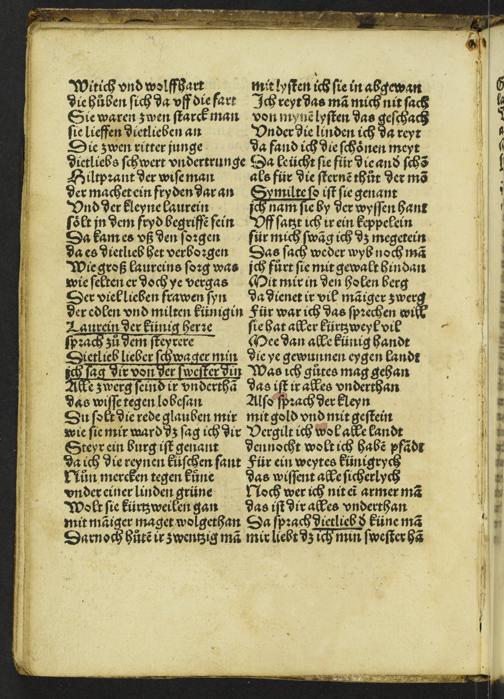 Witich vnd wolffhart
die hůben sich da vff die fart
Sie waren zwen starck man
sie lieffen dietlieben an
Die zwen ritter junge
dietliebs schwert vndertrunge
Hiltprant der wise man
der machet ein fryden dar an
Vnd der kleyne laurein
sôlt jn dem fryd begriffē sein
Da kam es vß den sorgen
da es dietlieb het verborgen
Wie groß laureins sorg was
wie selten er doch ye vergas
Der viel lieben frawen syn
der edlen vnd milten künigin
Laurein der künig herre
sprach zů dem steyrere
Dietlieb lieber schwager min
ich sag dir von der swester din
Alle zwerg seind ir vnderthā
das wisse tegen lobesan
Du solt die rede glauben mir
wie sie mir ward dz sag ich dir
Steyr ein burg ist genant
da ich die reynen küschen fant
Nůn mercken tegen küne
vnder einer linden grüne
Wolt sie kürtzweilen gan
mit māiger maget wolgethan
Darnoch hůtē ir zwentzig mā
mit lysten ich sie in abgewan
Ich reyt das mā mich nit sach
von mynē lysten das geschach
Vnder die linden ich da reyt
da fand ich die schônen meyt
Da leücht sie für die and schô
als für die sternē thůt der mō
Symilte so ist sie genant
jch nam sie by der wyssen hant
Vff satzt ich ir ein keppelein
für mich swāg ich dz megetein
Das sach weder wyb noch mā
jch fürt sie mit gewalt hindan
Mit mir in den holen berg
da dienet ir vil māiger zwerg
Für war ich das sprechen will
sie hat aller kürtzweyl vil
Mee dan alle künig handt
die ye gewunnen eygen landt
Was ich gůtes mag gehan
das ist ir alles vnderthan
Also sprach der kleyn
mit gold vnd mit gestein
Vergilt ich wol alle landt
dennocht wolt ich habē pfādt
Für ein weytes künigrych
das wissent alle sicherlych
Noch wer ich nit eī armer mā
das ist dir alles vnderthan
Da sprach dietlieb d̕ küne mā
mir liebt dz ich min swester hā